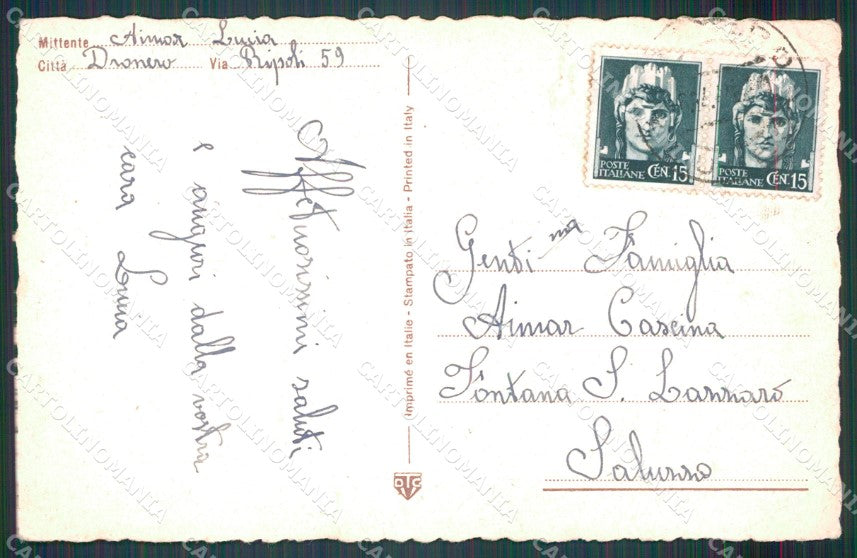 Mittente Aimar Lucia
Città Dronero Via Ripoli 59
Affetuosissimi saluti
e auguri dalla vostra
cara Lucia
Imprimé en Italie - Stampato in Italia - Printed in Italy
POSTE ITALIANE CEN. 15
POSTE ITALIANE CEN. 15
Genti ma Famiglia
Aimar Cascina
Fontana S. Lazzaro
Saluzzo
CARTOLINOMANIA